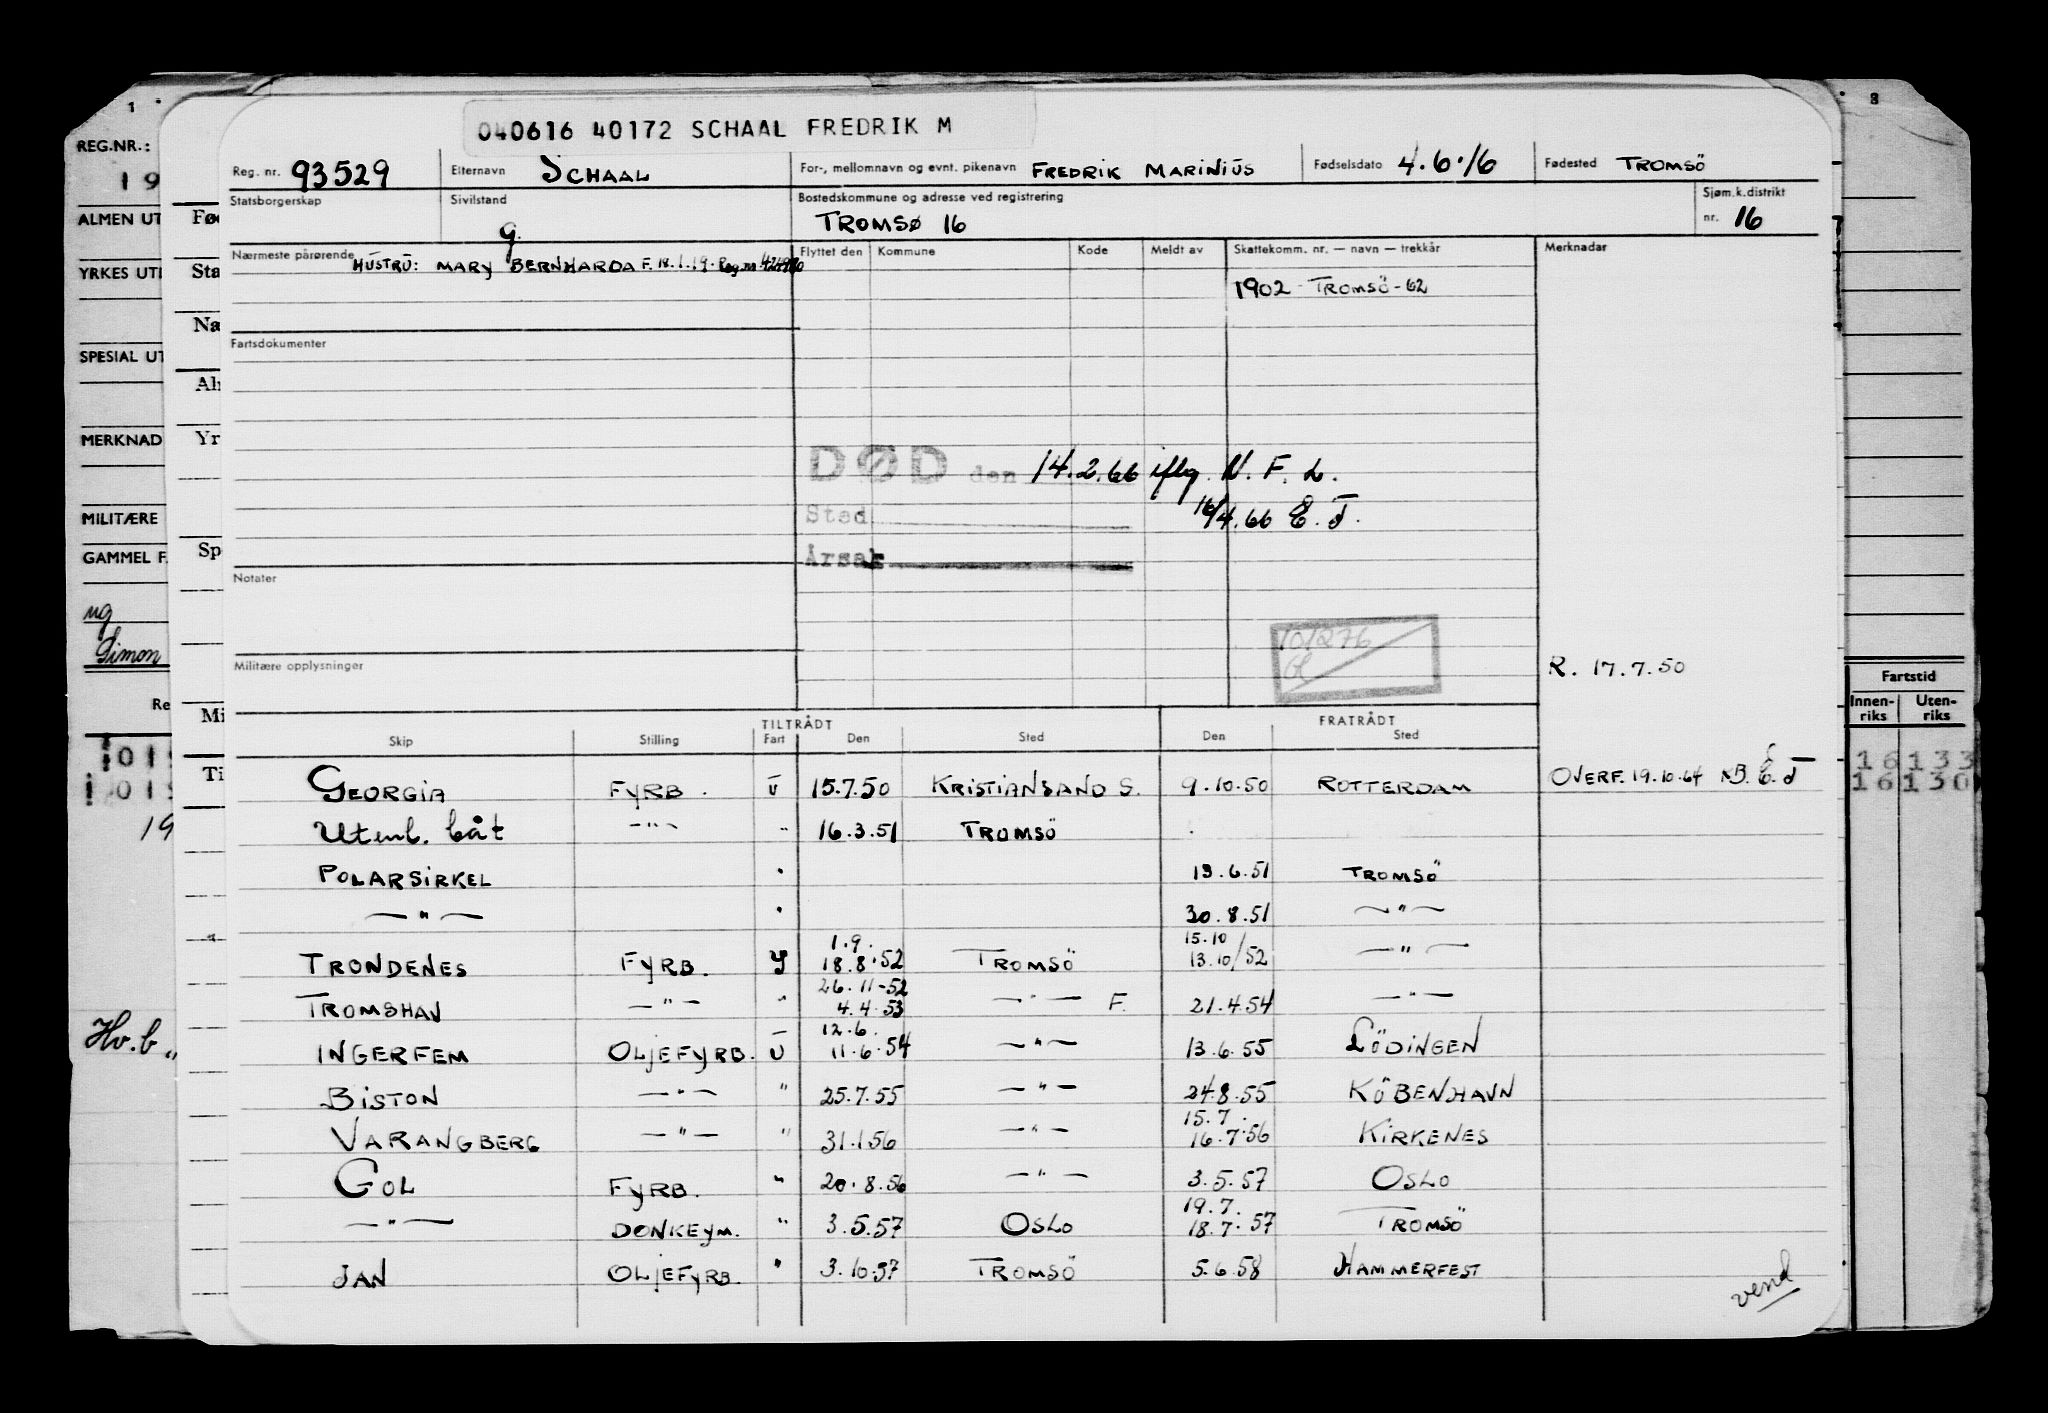 040616 40172 SCHAAL FREDRIK M
Reg. nr. 93529 Etternavn SCHAAL For-, mellomnavn og evnt. pikenavn FREDRIK MARINIUS Fødselsdato 4.6.16 Fødested TROMSÖ
Statsborgerskap Sivilstand G. Bostedskommune og adresse ved registrering TROMSØ 16 Sjøm.k.distrikt nr. 16
Nærmeste pårørende HUSTRU: MARY BERNHARDA F. 18.1.19. Reg.nr. Flyttet den Kommune Kode Meldt av Skattekomm. nr. — navn — trekkår Merknadar
1902 - TROMSÖ - 62
Fartsdokumenter
DØD den 14.2.66 iflg. N. F. L.
Sted 16/4.66 E. T.
Årsak
Notater
101276
Militære opplysninger R. 17.7.50
TILTRÅDT FRATRÅDT
Skip Stilling Fart Den Sted Den Sted
GEORGIA FYRB. U 15.7.50 KRISTIANSAND S. 9.10.50 ROTTERDAM OVERF. 19.10.64 E. T
Utenl. båt —"— " 16.3.51 TROMSÖ
POLARSIRKEL 13.6.51 TROMSÖ
—"— 30.8.51 —"—
1.9. 15.10
TRONDENES FYRB. 18.8.52 TROMSÖ 13.10/52 —"—
26.11-52
TROMSHAV —"— " 4.4.53 —"— F. 21.4.54 —"—
12.6.
INGERFEM OLJEFYRB. U 11.6.54 —"— 13.6.55 LÖDINGEN
BISTON —"— " 25.7.55 —"— 24.8.55 KÖBENHAVN
15.7.
VARANGBERG —"— " 31.1.56 —"— 16.7.56 KIRKENES
GOL FYRB. " 20.8.56 —"— 3.5.57 OSLO
19.7.
—"— DONKEYM. " 3.5.57 OSLO 18.7.57 TROMSÖ
JAN OLJEFYRB. " 3.10.57 TROMSÖ 5.6.58 HAMMERFEST
vend
1
REG.NR.:
19
ALMEN UT
YRKES UT
SPESIAL UT
MERKNAD
MILITÆRE
GAMMEL F.
ug
Simon
Re
019
019
19
Hv.b
Fød
Sta
Næ
Al
Yr
Sp
Mi
Ti
8
Fartstid
Innen-riks Uten-riks
16 133
16 130